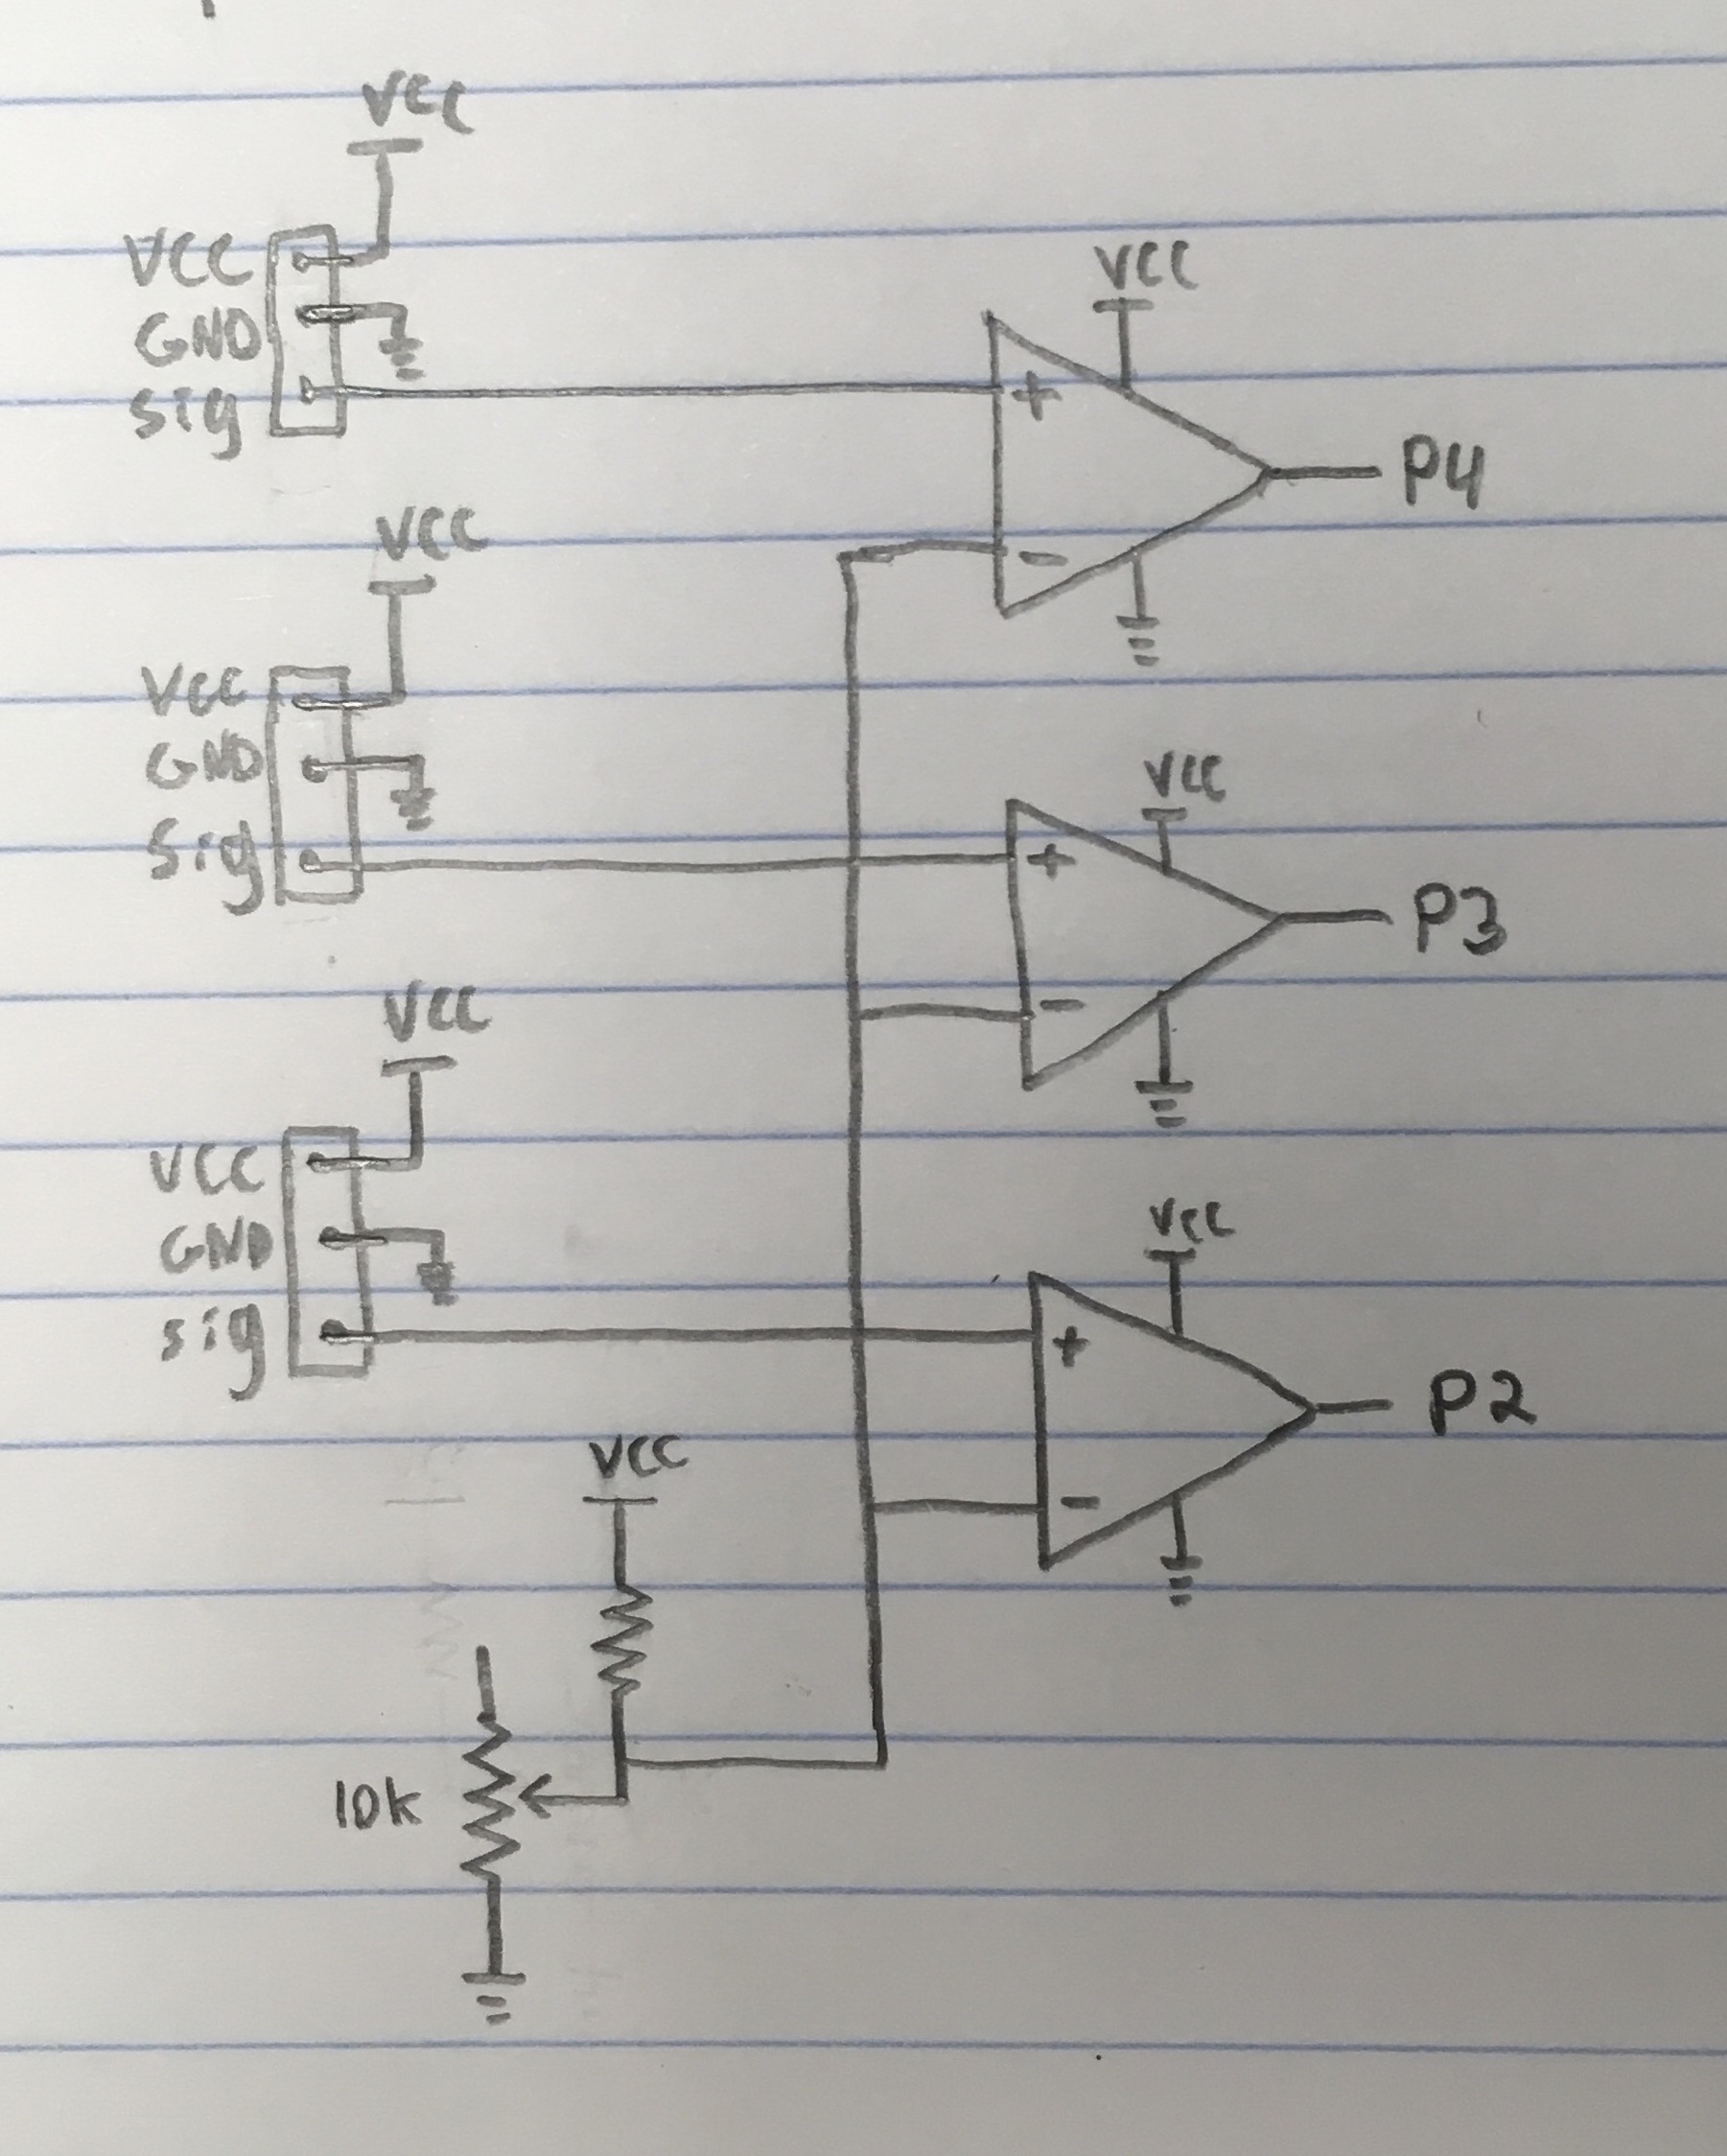 VCC
VCC
GND
sig
VCC
+
-
P4
VCC
VCC
GND
Sig
VCC
+
-
P3
VCC
VCC
GND
sig
VCC
+
-
P2
VCC
10k